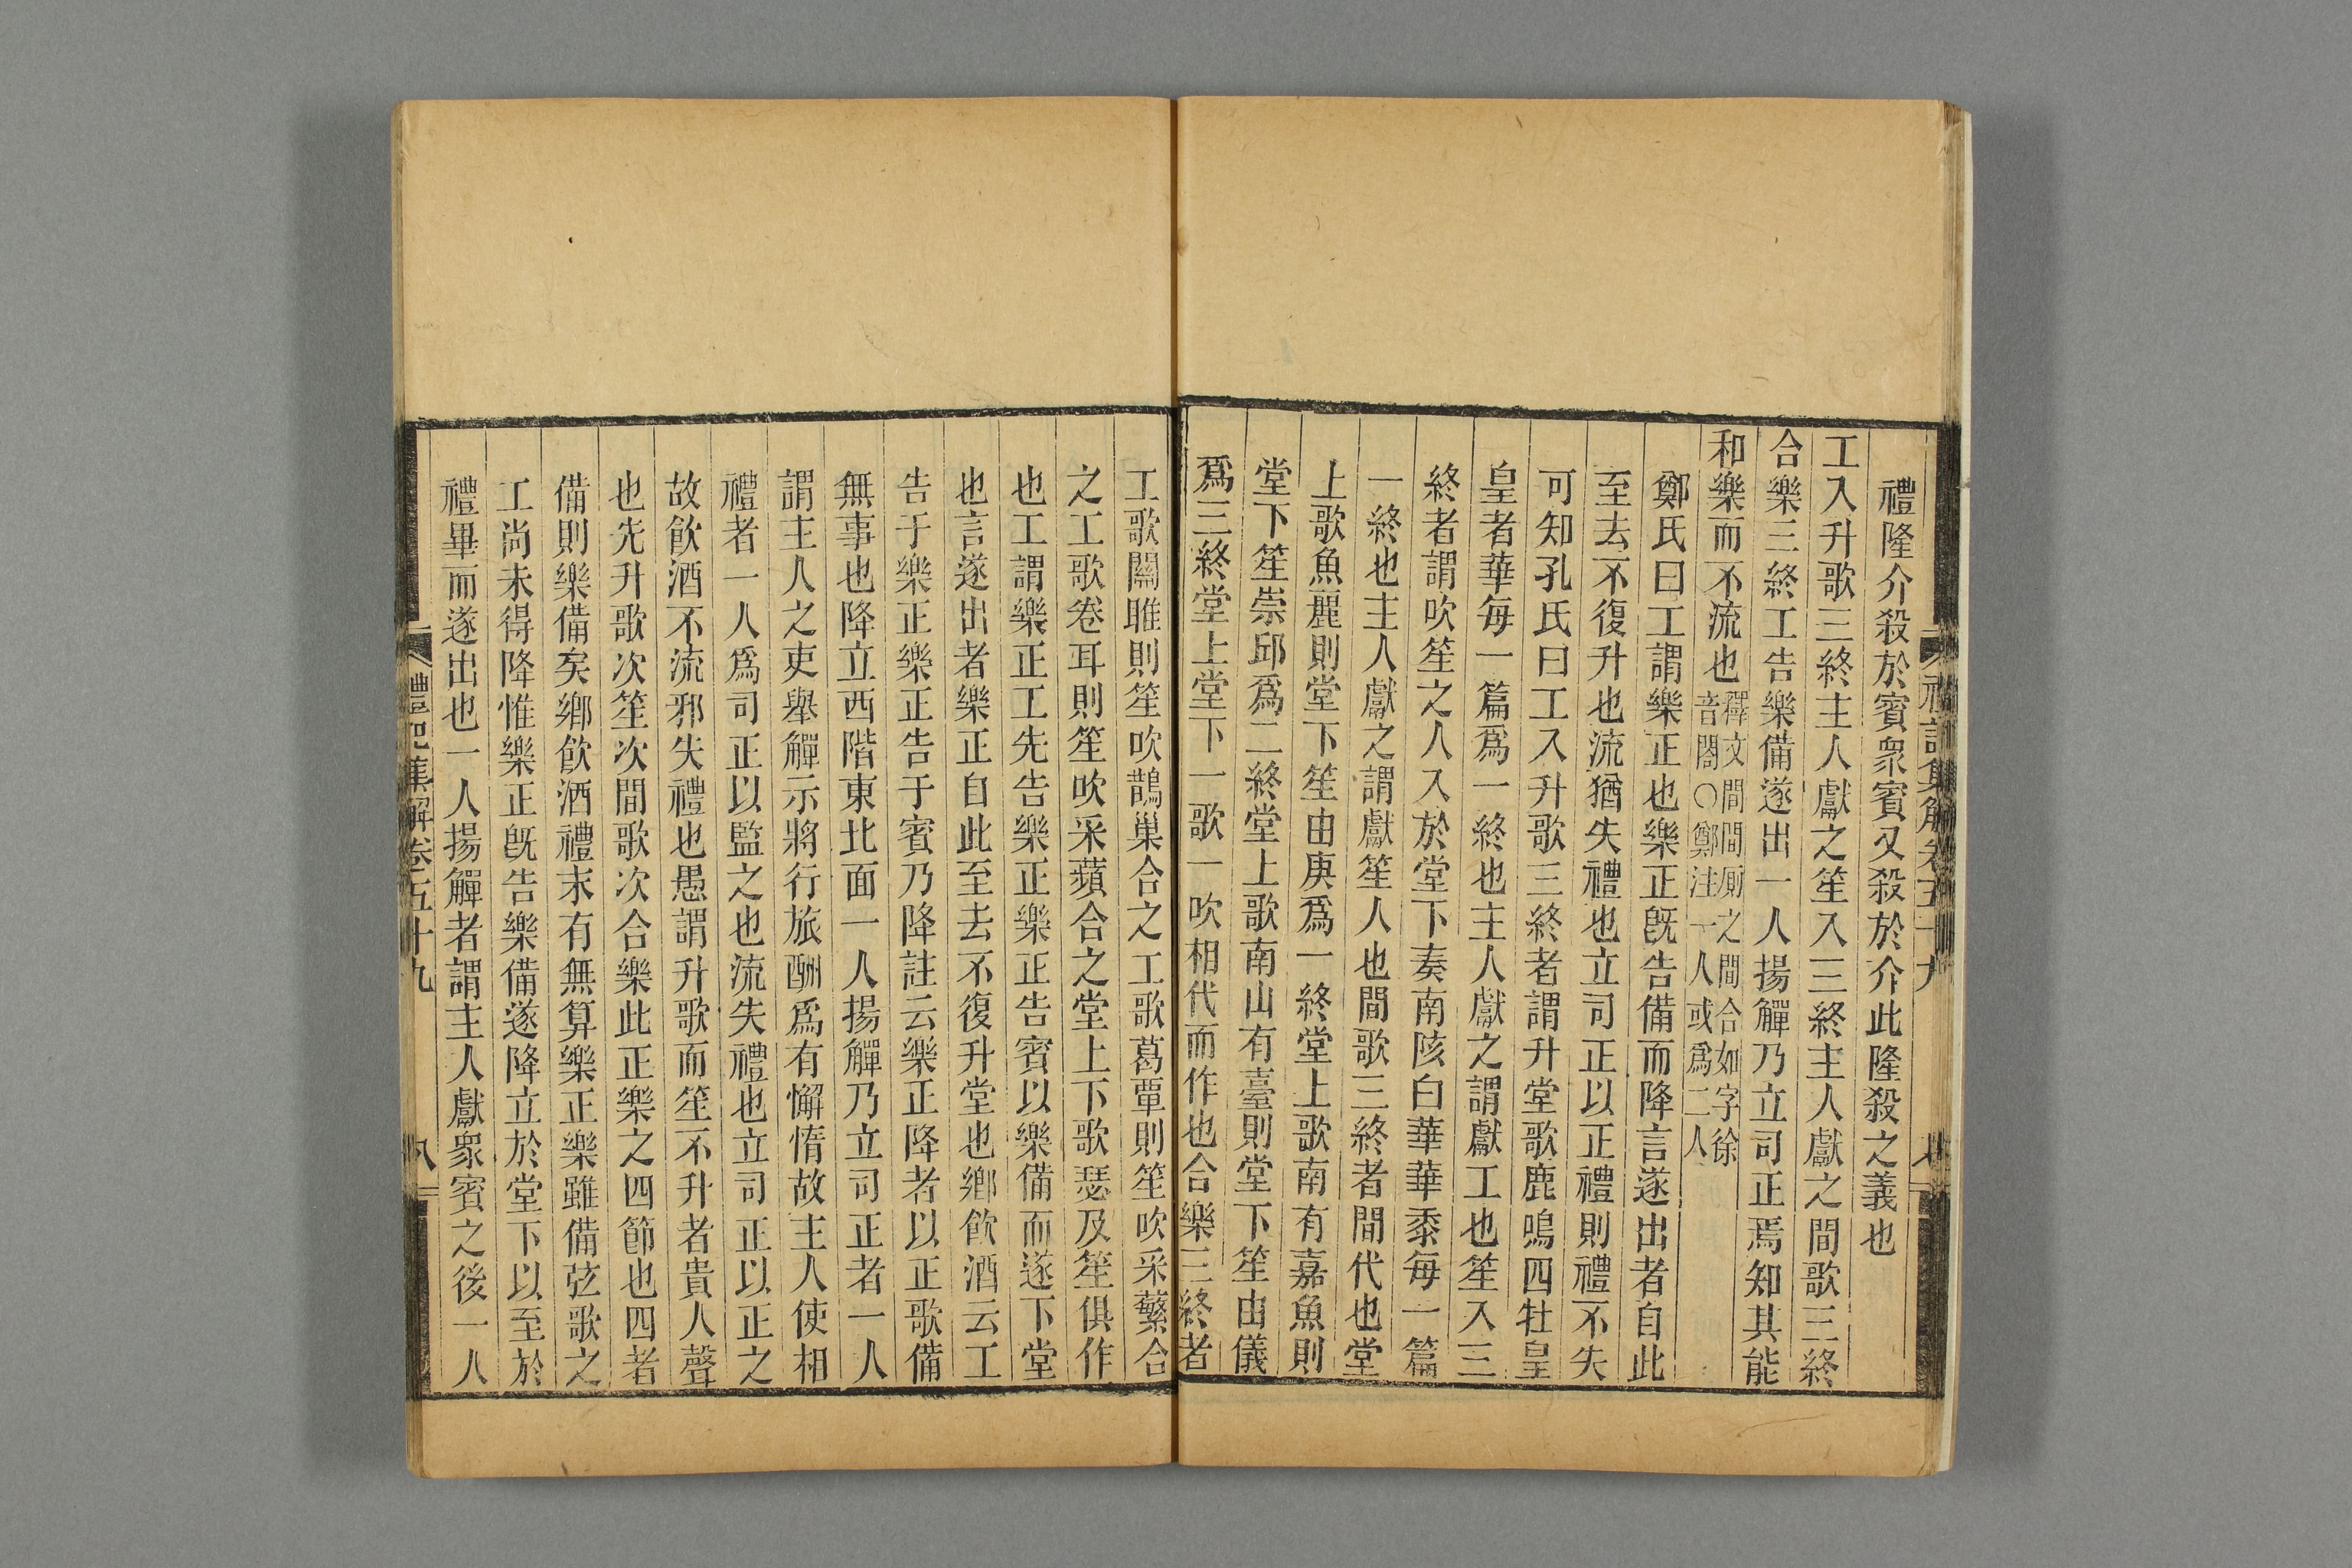 禮隆介殺於賓衆賓又殺於介此隆殺之義也
工入升歌三終主人獻之笙入三終主人獻之間歌三終
合樂三終工告樂備遂出一人揚觶乃立司正焉知其能
和樂而不流也釋文間間厠之間合如字徐
音閤○鄭注一人或爲二人
鄭氏曰工謂樂正也樂正既告備而降言遂出者自此
至去不復升也流猶失禮也立司正以正禮則禮不失
可知孔氏曰工入升歌三終者謂升堂歌鹿鳴四牡皇
皇者華每一篇爲一終也主人獻之謂獻工也笙入三
終者謂吹笙之人入於堂下奏南陔白華華黍每一篇
一終也主人獻之謂獻笙人也間歌三終者間代也堂
上歌魚麗則堂下笙由庚爲一終堂上歌南有嘉魚則
堂下笙崇邱爲二終堂上歌南山有臺則堂下笙由儀
爲三終堂上堂下一歌一吹相代而作也合樂三終者
工歌關雎則笙吹鵲巢合之工歌葛覃則笙吹采蘩合
之工歌卷耳則笙吹采蘋合之堂上下歌瑟及笙俱作
也工謂樂正工先告樂正樂正告賓以樂備而遂下堂
也言遂出者樂正自此至去不復升堂也鄉飲酒云工
告于樂正樂正告于賓乃降註云樂正降者以正歌備
無事也降立西階東北面一人揚觶乃立司正者一人
謂主人之吏舉觶示將行旅酬爲有懈惰故主人使相
禮者一人爲司正以監之也流失禮也立司正以正之
故飲酒不流邪失禮也愚謂升歌而笙不升者貴人聲
也先升歌次笙次間歌次合樂此正樂之四節也四者
備則樂備矣鄉飲酒禮末有無算樂正樂雖備弦歌之
工尚未得降惟樂正既告樂備遂降立於堂下以至於
禮畢而遂出也一人揚觶者謂主人獻衆賓之後一人
禮記集解卷五十九
八